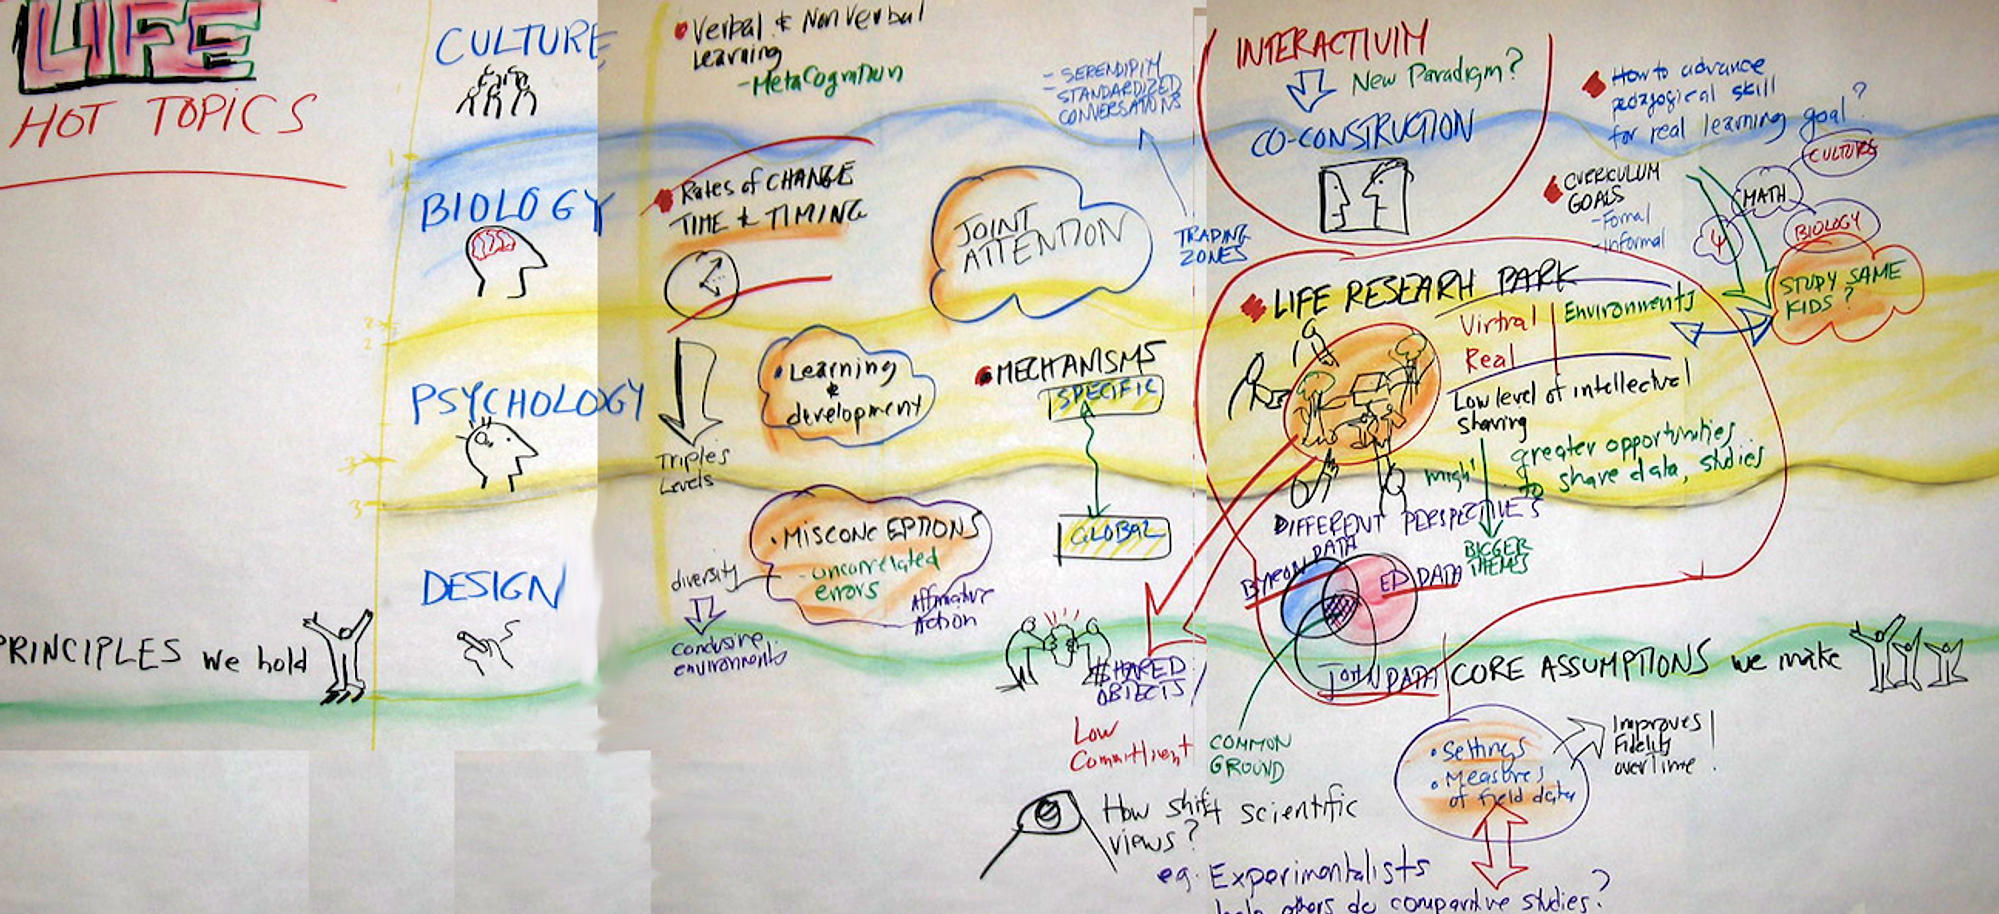 LIFE
HOT TOPICS
CULTURE
BIOLOGY
PSYCHOLOGY
DESIGN
PRINCIPLES we hold
1
2
2
3
3
Verbal & NonVerbal
Learning
- MetaCognition
Rates of CHANGE
TIME & TIMING
Triples
Levels
JOINT
ATTENTION
- SERENDIPITY
- STANDARDIZED
CONVERSATIONS
TRADING
ZONES
• Learning
&
development
• MECHANISMS
SPECIFIC
GLOBAL
• MISCONCEPTIONS
- uncorrelated
errors
diversity
Affirmative
Action
environments
SHARED
OBJECTS
Low
Commitment
INTERACTIVITY
New Paradigm?
CO-CONSTRUCTION
How to advance
pedagogical skill
for real learning goal?
CURRICULUM
GOALS
- Formal
- informal
CULTURE
MATH
Ψ
BIOLOGY
STUDY SAME
KIDS?
LIFE RESEARH PARK
Virtral
Real
Environments
Low level of intellectual
sharing
might
greater opportunities
to share data, studies
DIFFERENT PERSPECTIVES
BIGGER
THEMES
DATA
ED DATA
JOHN DATA
COMMON
GROUND
CORE ASSUMPTIONS we make
• Settings
• Measures
of field data
Improves
Fidelity
over time!
How shift scientific
views?
eg. Experimentalists
help others do comparitive studies?